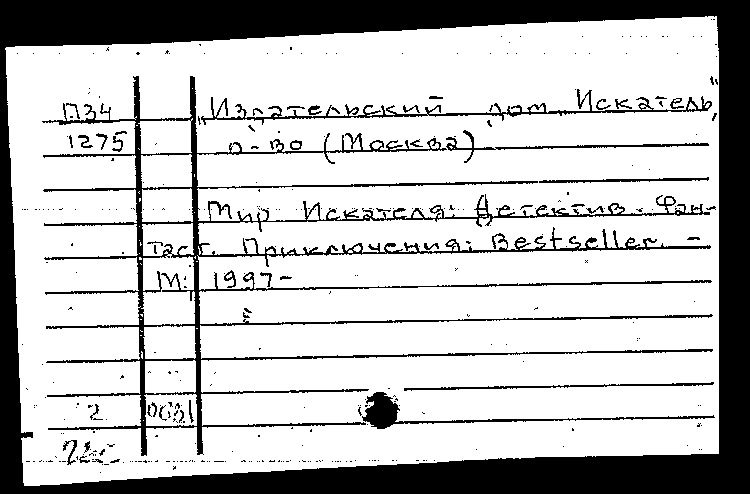 П34 „Издательский дом „Искатель”,
1275 о-во (Москва)
Мир Искателя: Детектив. Фан-
таст. Приключения: Bestseller. –
М:, 1997–
2